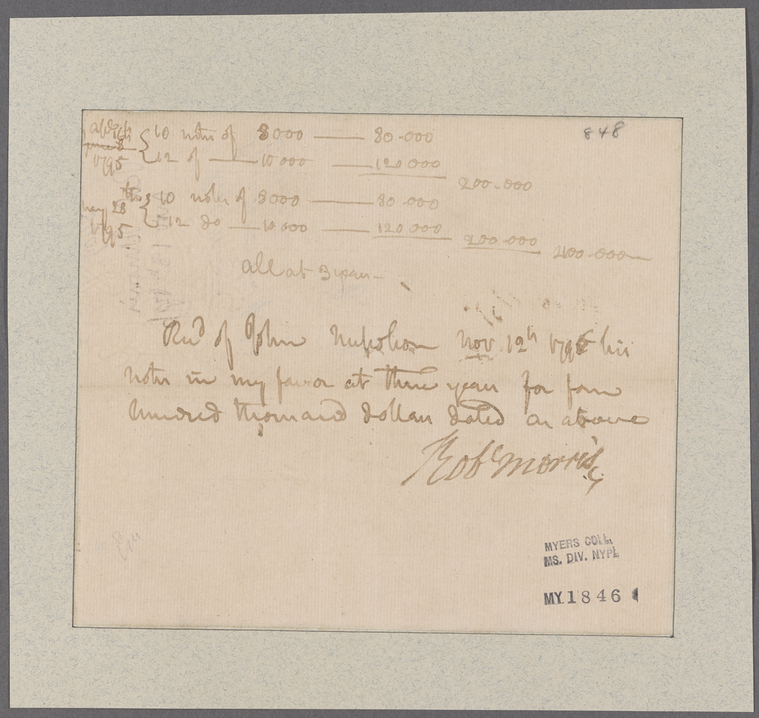 848
10 notes of 8000 — 80.000
1795 12 of — 10 000 — 120 000
200.000
10 notes of 8000 — 80.000
May 28
1795 12 do — 10,000 — 120 000 200.000 400.000
all at 3 years
Recd of John Nicholson Nov 12th 1795 his
notes in my favor at three years for four
hundred thousand dollars dated as above
Robt Morris
MYERS COLL.
MS. DIV. NYPL
MY.1846